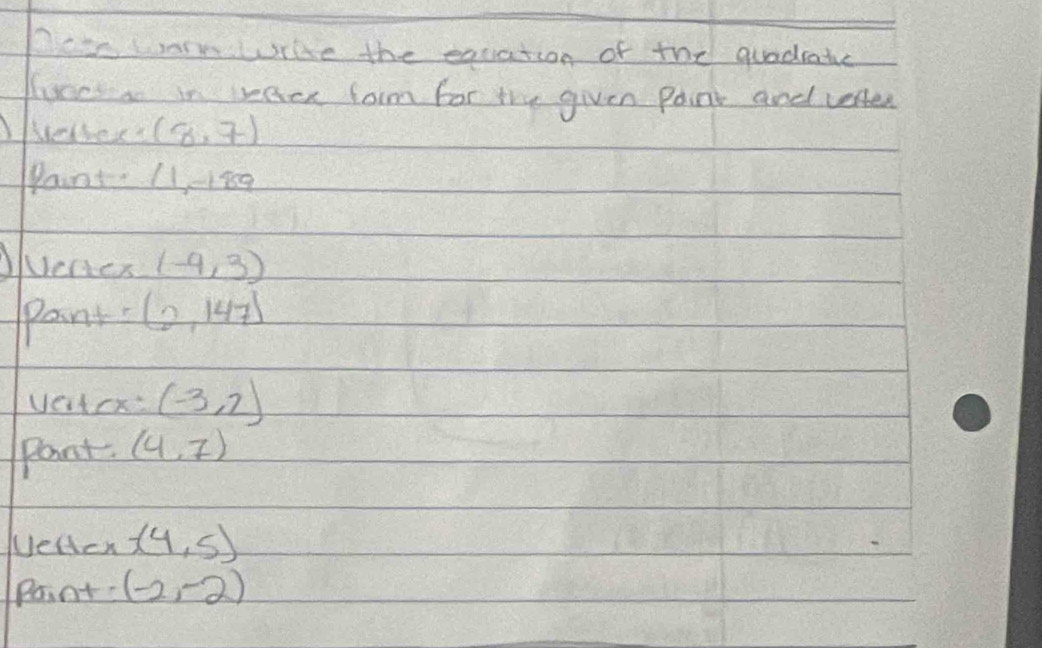 write the equation of the quadratic
function in vertex form for the given Point and vertex
) Vertex: (8, 7)
Point: (1, -189
) Vertex (-9, 3)
Point: (2, 147)
Vertex: (-3, 2)
Point: (4, 7)
Vertex (4, 5)
Point: (-2, -2)